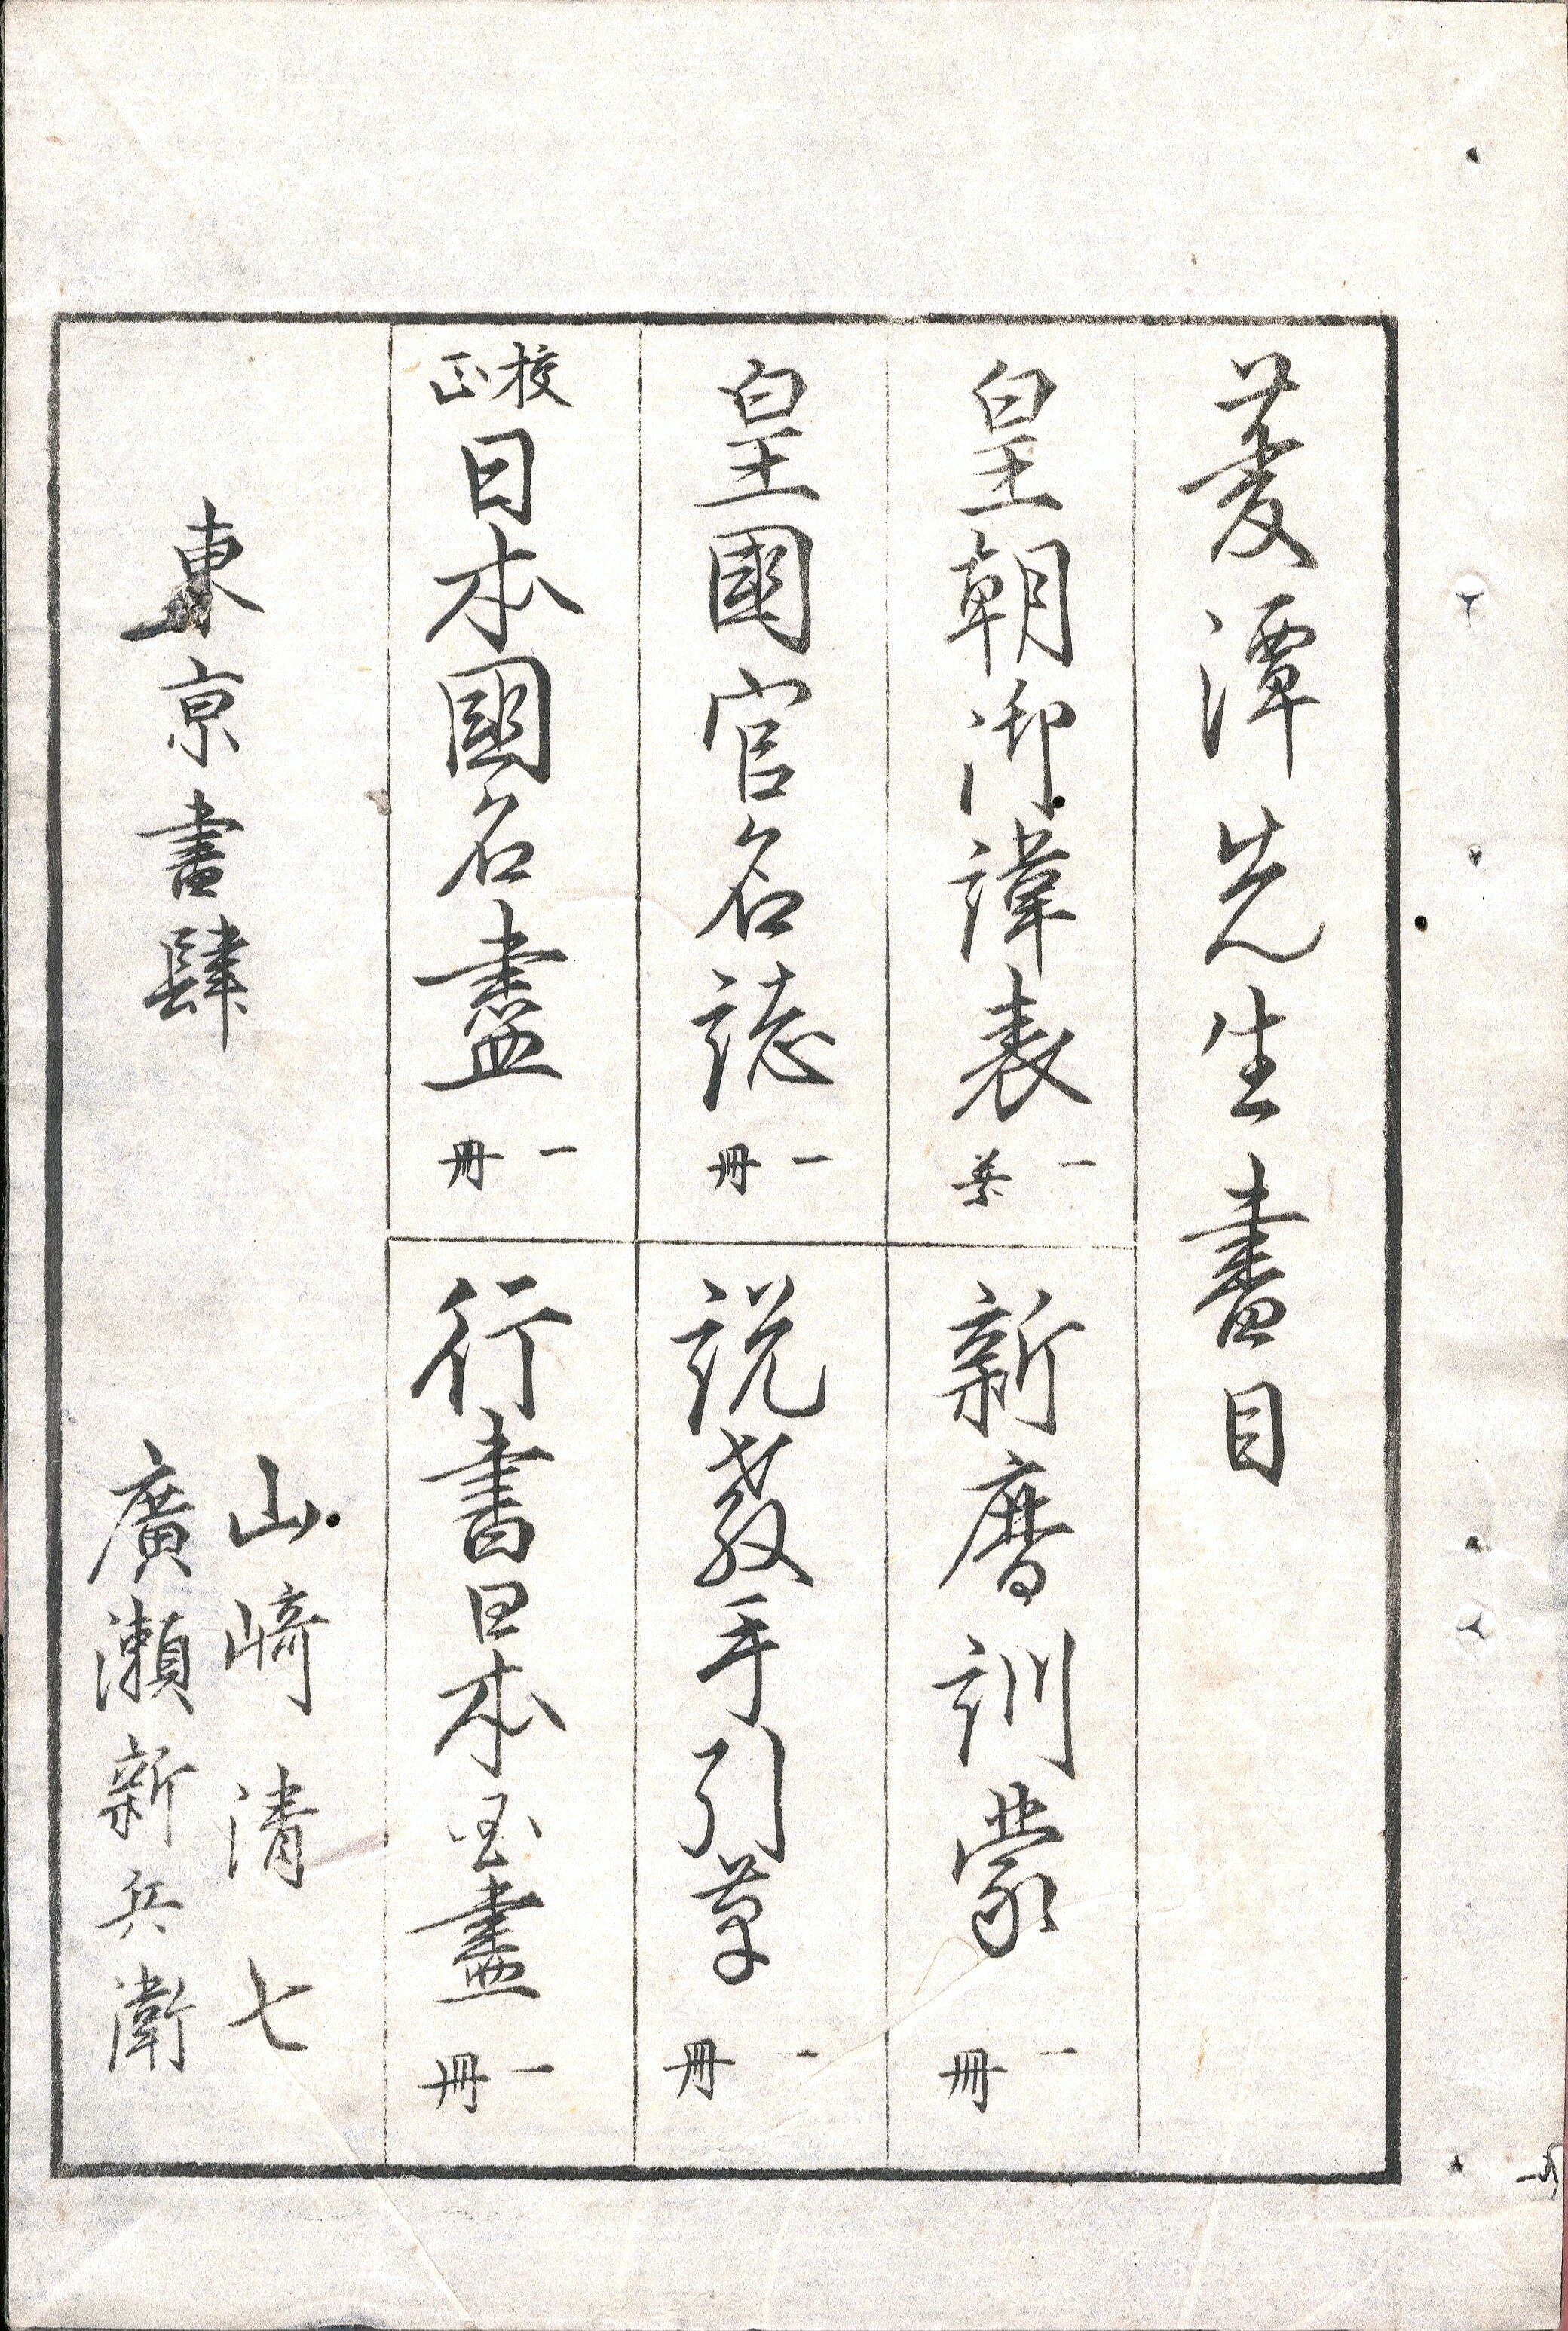 菱潭先生書目
皇朝御諱表 一葉
新暦訓蒙 一冊
皇國官名誌 一冊
説教手引草 一冊
校正日本國名盡 一冊
行書日本国盡 一冊
東京書肆
山崎清七
廣瀬新兵衛